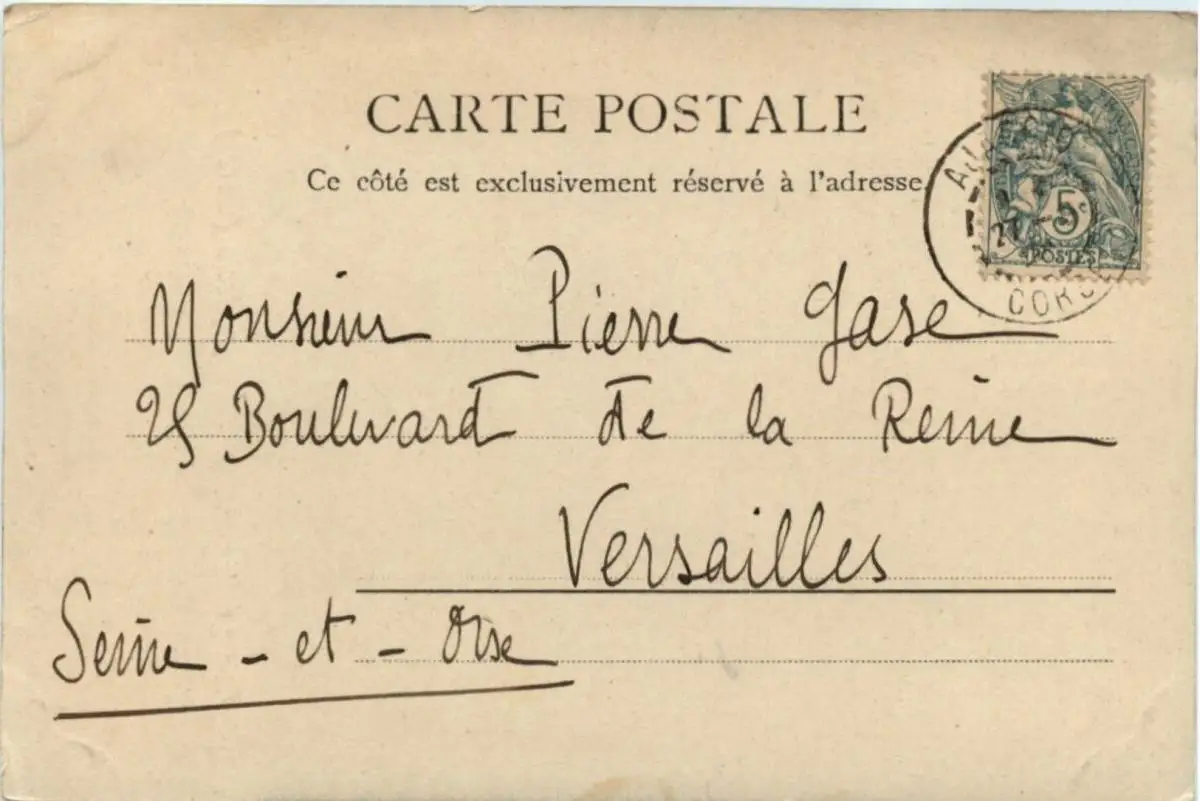 CARTE POSTALE
Ce côté est exclusivement réservé à l'adresse.
5c
POSTES
CORSE
Monsieur Pierre Gase
25 Boulevard de la Reine
Versailles
Seine-et-Oise